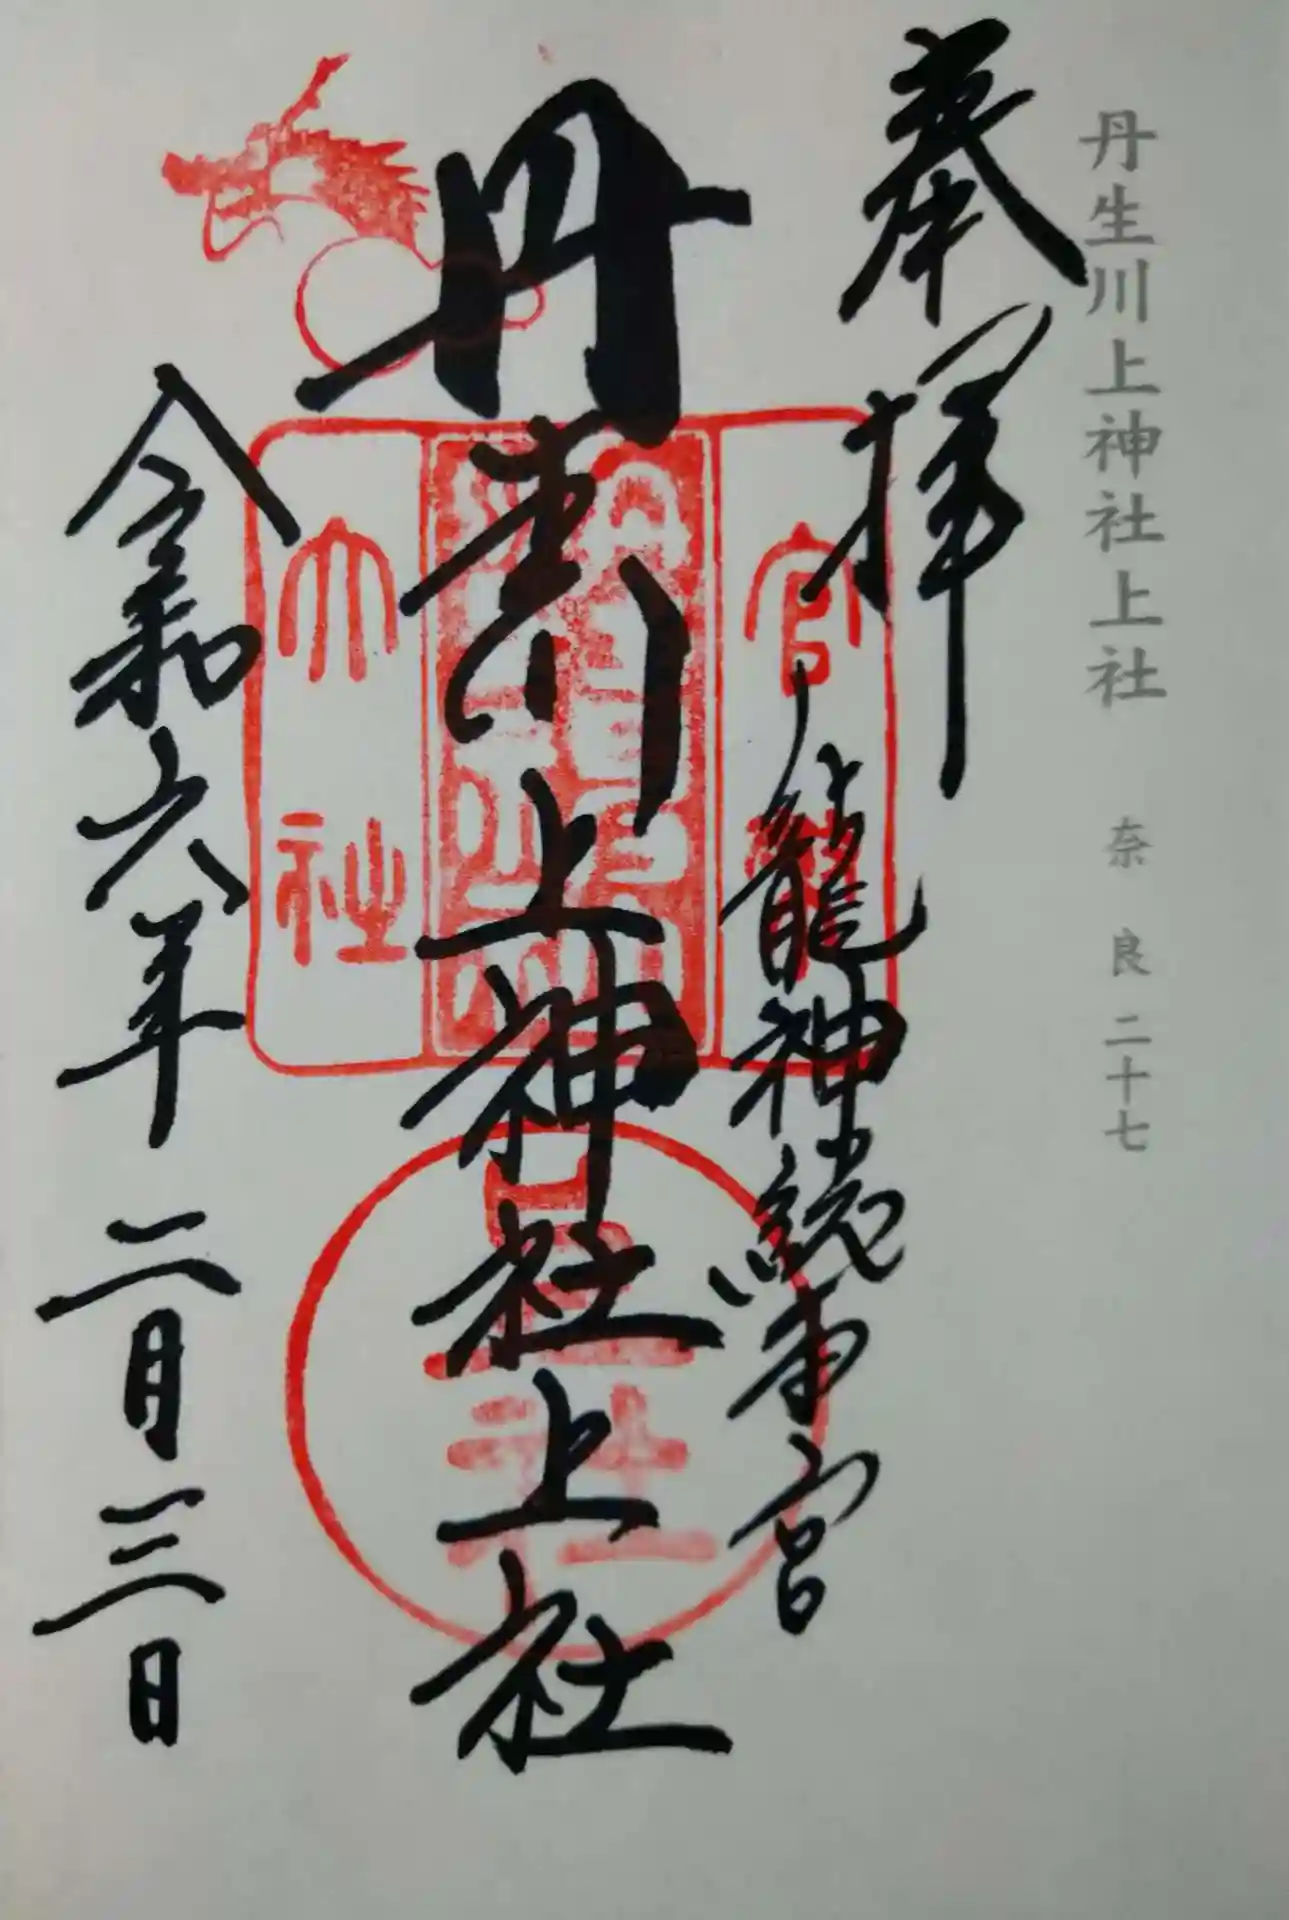 丹生川上神社上社 奈良二十七
奉拝
龍神総本宮
丹生川上神社上社
官幣
大社
令和六年二月三日